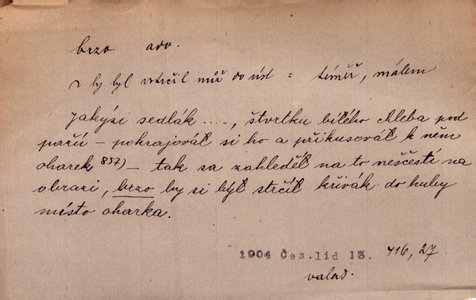 brzo adv.
by byl strčil nůž do úst : téměř, málem
Jakýsi sedlák ...., čtvrtku bílého chleba pod
paží – pokrajovál si ho a přikusovál k něm
oharek 857) – tak sa zahleděl na to neščestí na
obrazi, brzo by si býł strčił křivák do huby
místo oharka.
1904 Čes. lid 13. 416, 27.
valaš.